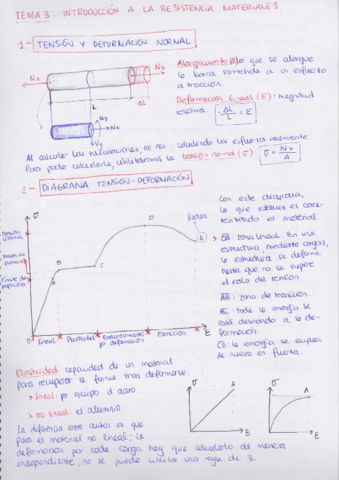 TEMA 3: INTRODUCCIÓN A LA RESISTENCIA MATERIALES
1- TENSIÓN Y DEFORMACIÓN NORMAL
Alargamiento: lo que se alargue
la barra sometida a un esfuerzo
a tracción.
Deformación lineal (ε): magnitud
relativa. ΔL/L = ε
Nx
Nx
L
ΔL
Nx
Vy
Al calcular las
no nos
calculando los esfuerzos realmente.
Para poder calcularlo, utilizaremos la tensión normal (σ) σ = Nx/A
2- DIAGRAMA TENSIÓN-DEFORMACIÓN
Con este diagrama,
lo que
el material
σ
D
Rotura
E
B
C
A
ε
Lineal
Plasticidad
Endurecimiento
por deformación
Estricción
OA: zona lineal. En una
estructura, mediante cargas,
la estructura se deforma,
hasta que no se supere
el valor de tensión.
AB: zona de
BC: toda la energía se
está
a la de-
formación.
CD: la energía se emplea
de nuevo en fuerza.
Elasticidad capacidad de un material
para recuperar la forma tras deformarse.
> lineal: por ejemplo el acero.
> no lineal: el aluminio.
La diferencia entre ambos es que
para el material no lineal; la
deformación por cada carga hay que calcularla de manera
independiente, no se puede utilizar una regla de 3.
σ
A
ε
σ
A
ε